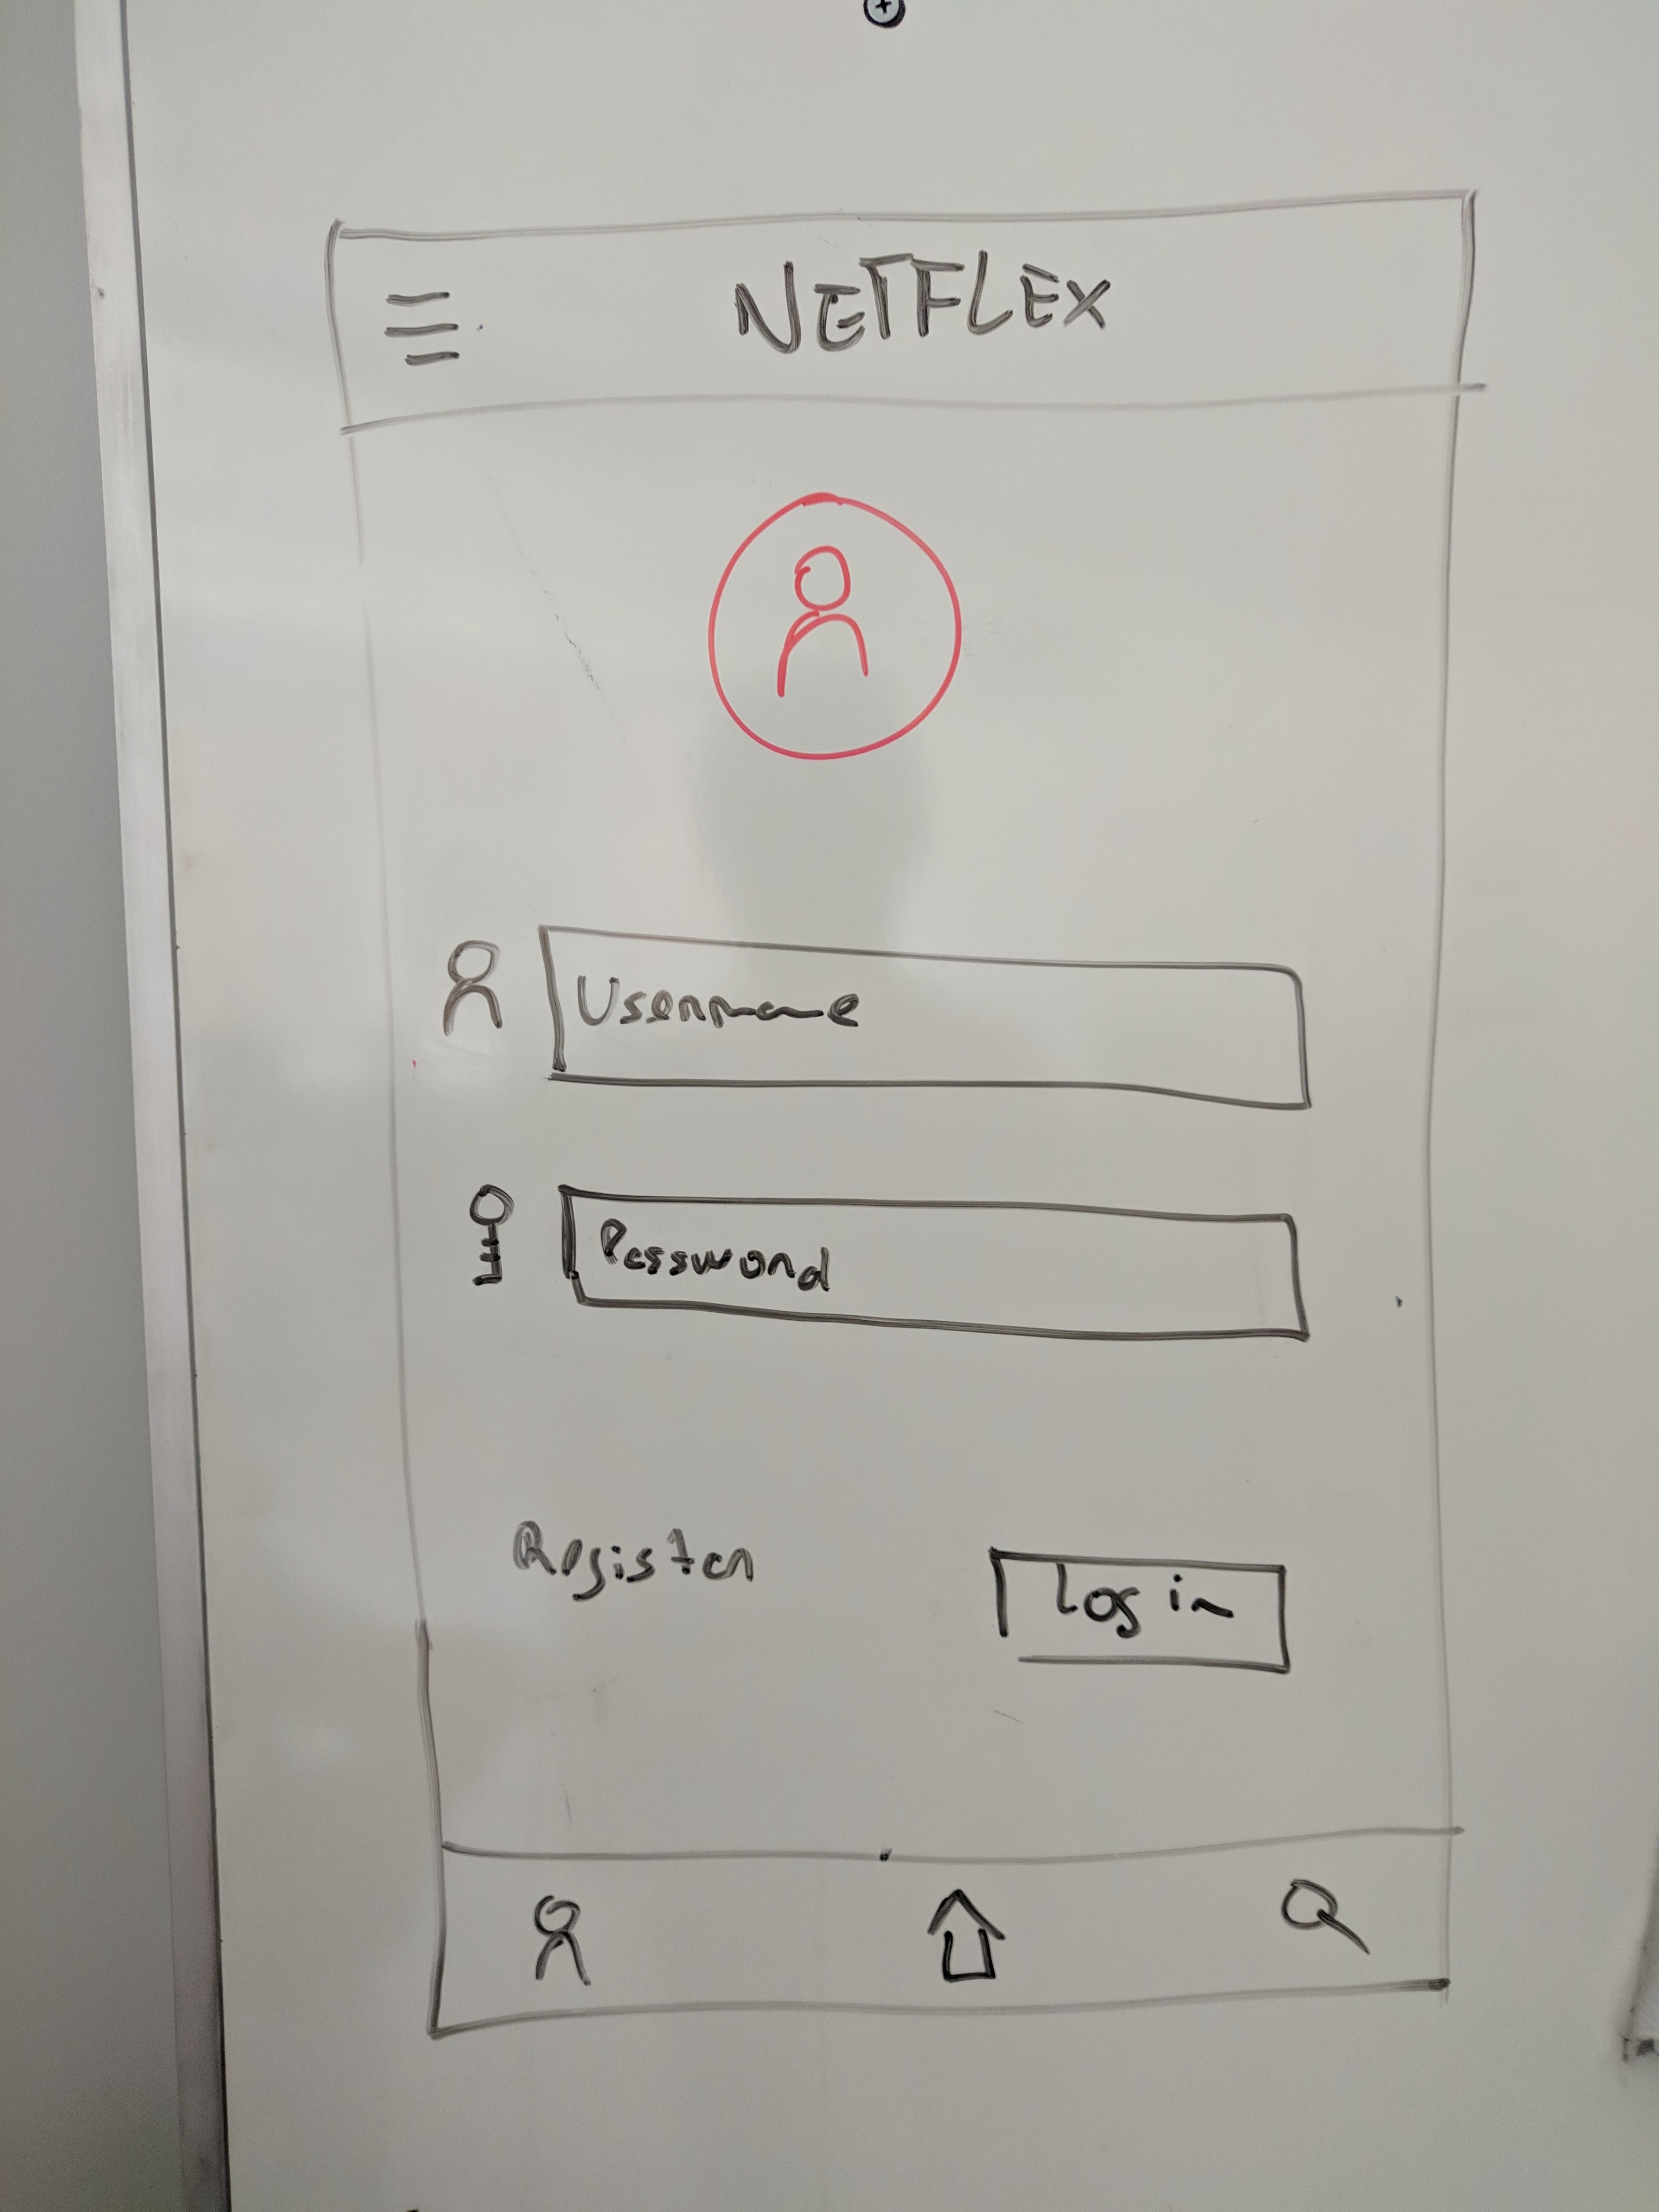 NETFLEX
Username
Password
Register
Log in